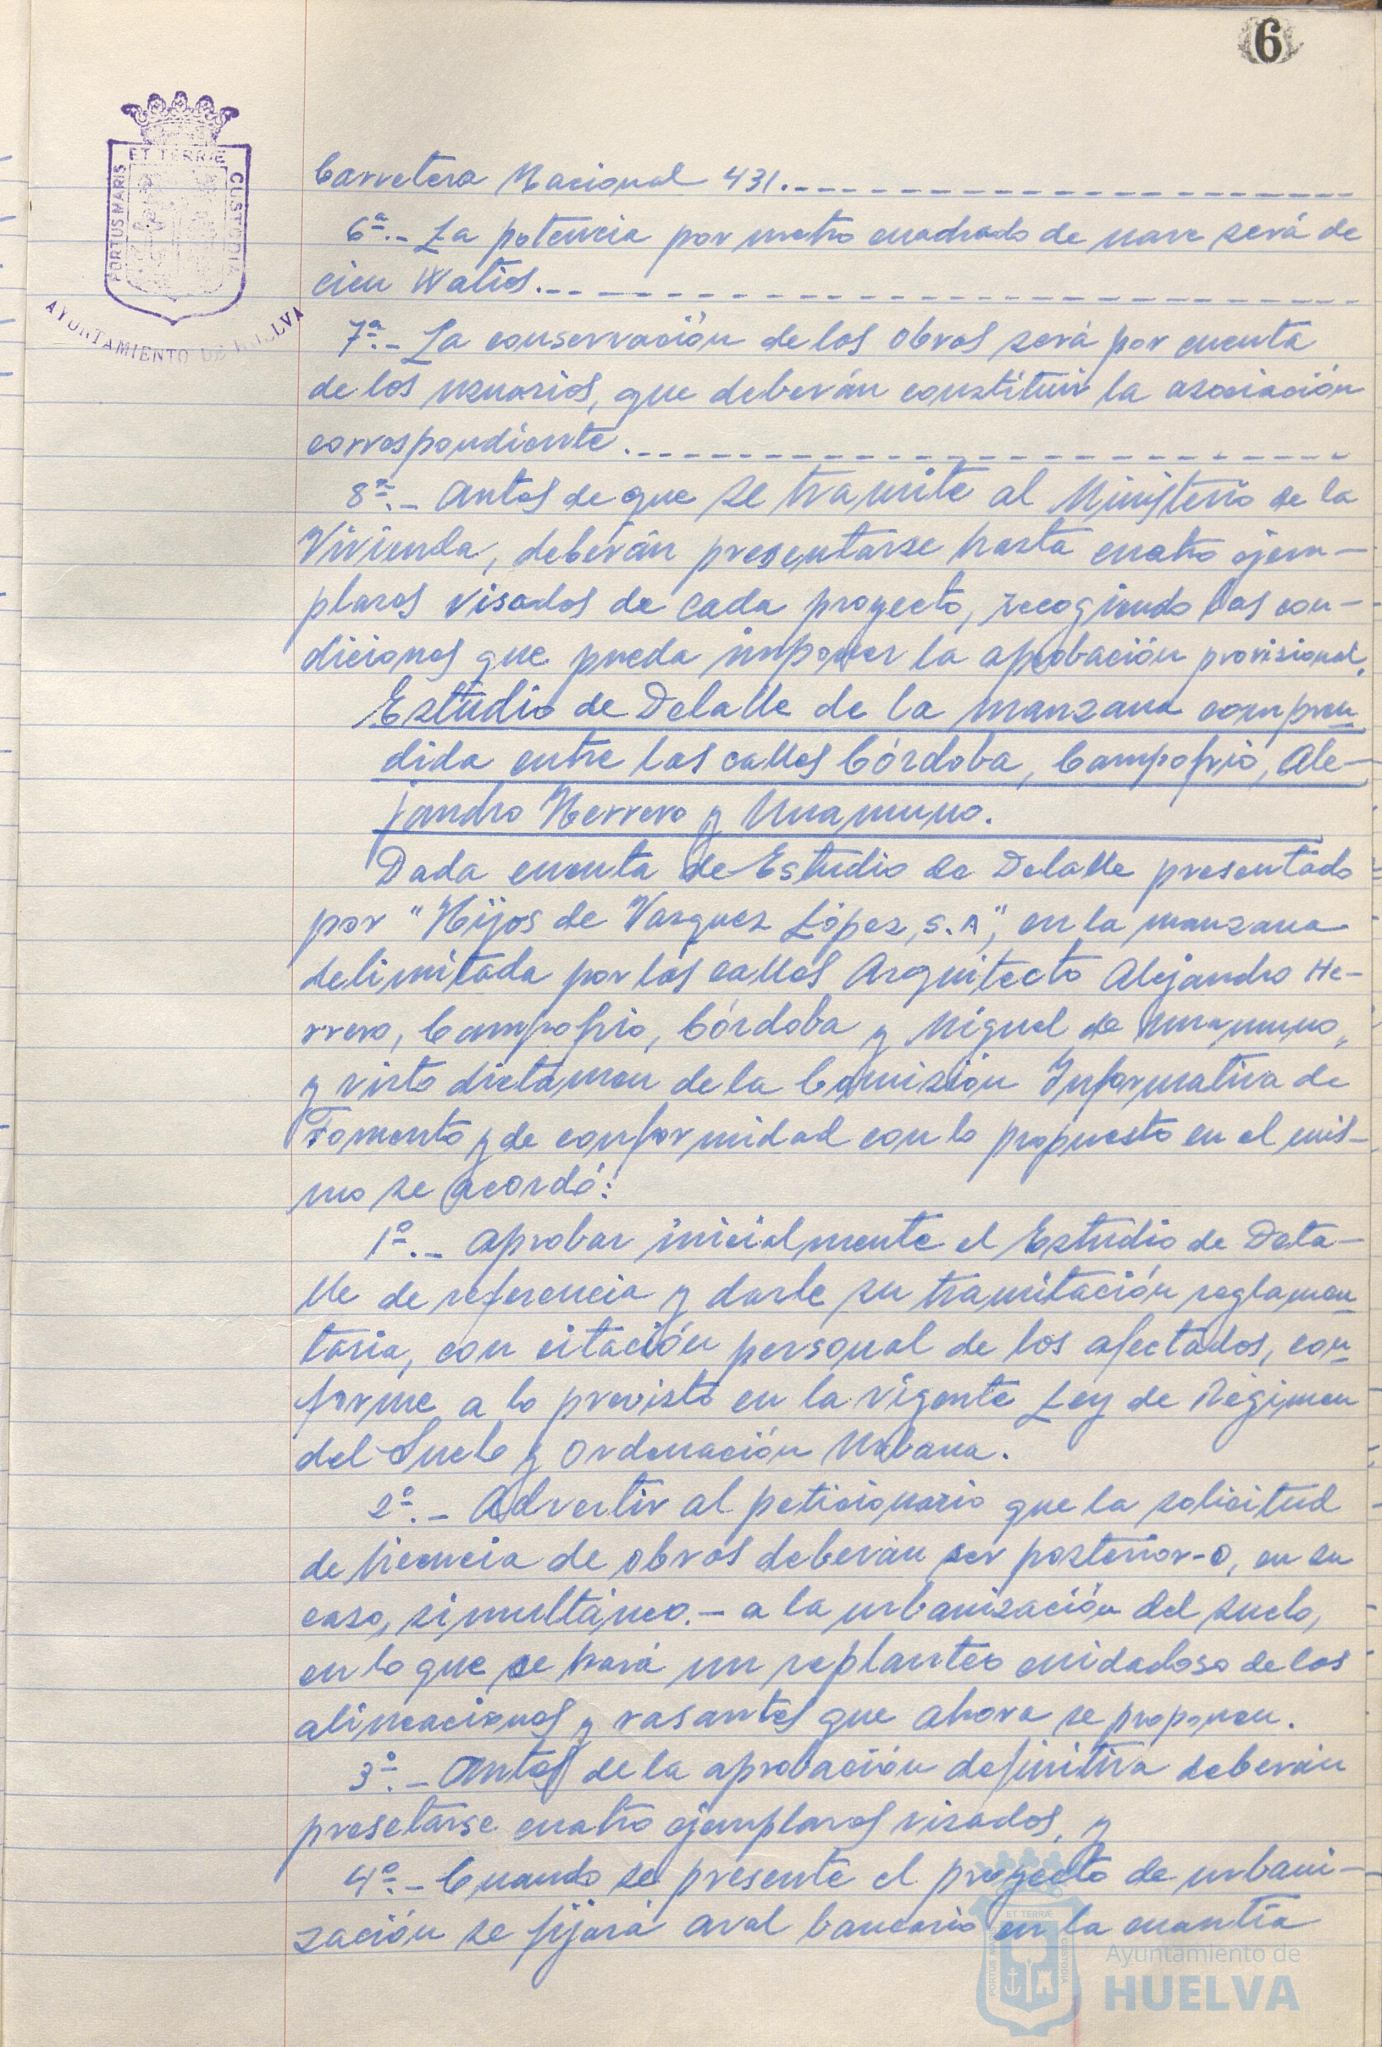 6
ET TERRÆ
PORTUS MARIS
CUSTODIA
AYUNTAMIENTO DE HUELVA
Carretera Nacional 431.
6ª.- La potencia por metro cuadrado de nave será de
cien Watios.
7ª.- La conservación de las obras será por cuenta
de los usuarios, que deberán constituir la asociación
correspondiente.
8ª.- Antes de que se tramite al Ministerio de la
Vivienda, deberán presentarse hasta cuatro ejem-
plares visados de cada proyecto, recogiendo las con-
diciones que pueda imponer la aprobación provisional.
Estudio de Detalle de la manzana compren-
dida entre las calles Córdoba, Campofrio, Ale-
jandro Herrero y Unamuno.
Dada cuenta de Estudio de Detalle presentado
por "Hijos de Vazquez López, S.A", en la manzana
delimitada por las calles Arquitecto Alejandro He-
rrero, Campofrio, Córdoba y Miguel de Unamuno,
y visto dictamen de la Comisión Informativa de
Fomento y de conformidad con lo propuesto en el mis-
mo se acordó:
1º.- Aprobar inicialmente el Estudio de Deta-
lle de referencia y darle su tramitación reglamen-
taria, con citación personal de los afectados, con-
forme a lo previsto en la vigente Ley de Régimen
del Suelo y Ordenación Urbana.
2º.- Advertir al peticionario que la solicitud
de licencia de obras deberán ser posterior-o, en su
caso, simultáneo.- a la urbanización del suelo,
en lo que se hará un replanteo cuidadoso de las
alineaciones y rasantes que ahora se proponen.
3º.- Antes de la aprobación definitiva deberán
presetarse cuatro ejemplares visados, y
4º.- Cuando se presente el proyecto de urbani-
zación se fijará aval bancario en la cuantía
ET TERRÆ
PORTUS MARIS
CUSTODIA
Ayuntamiento de
HUELVA